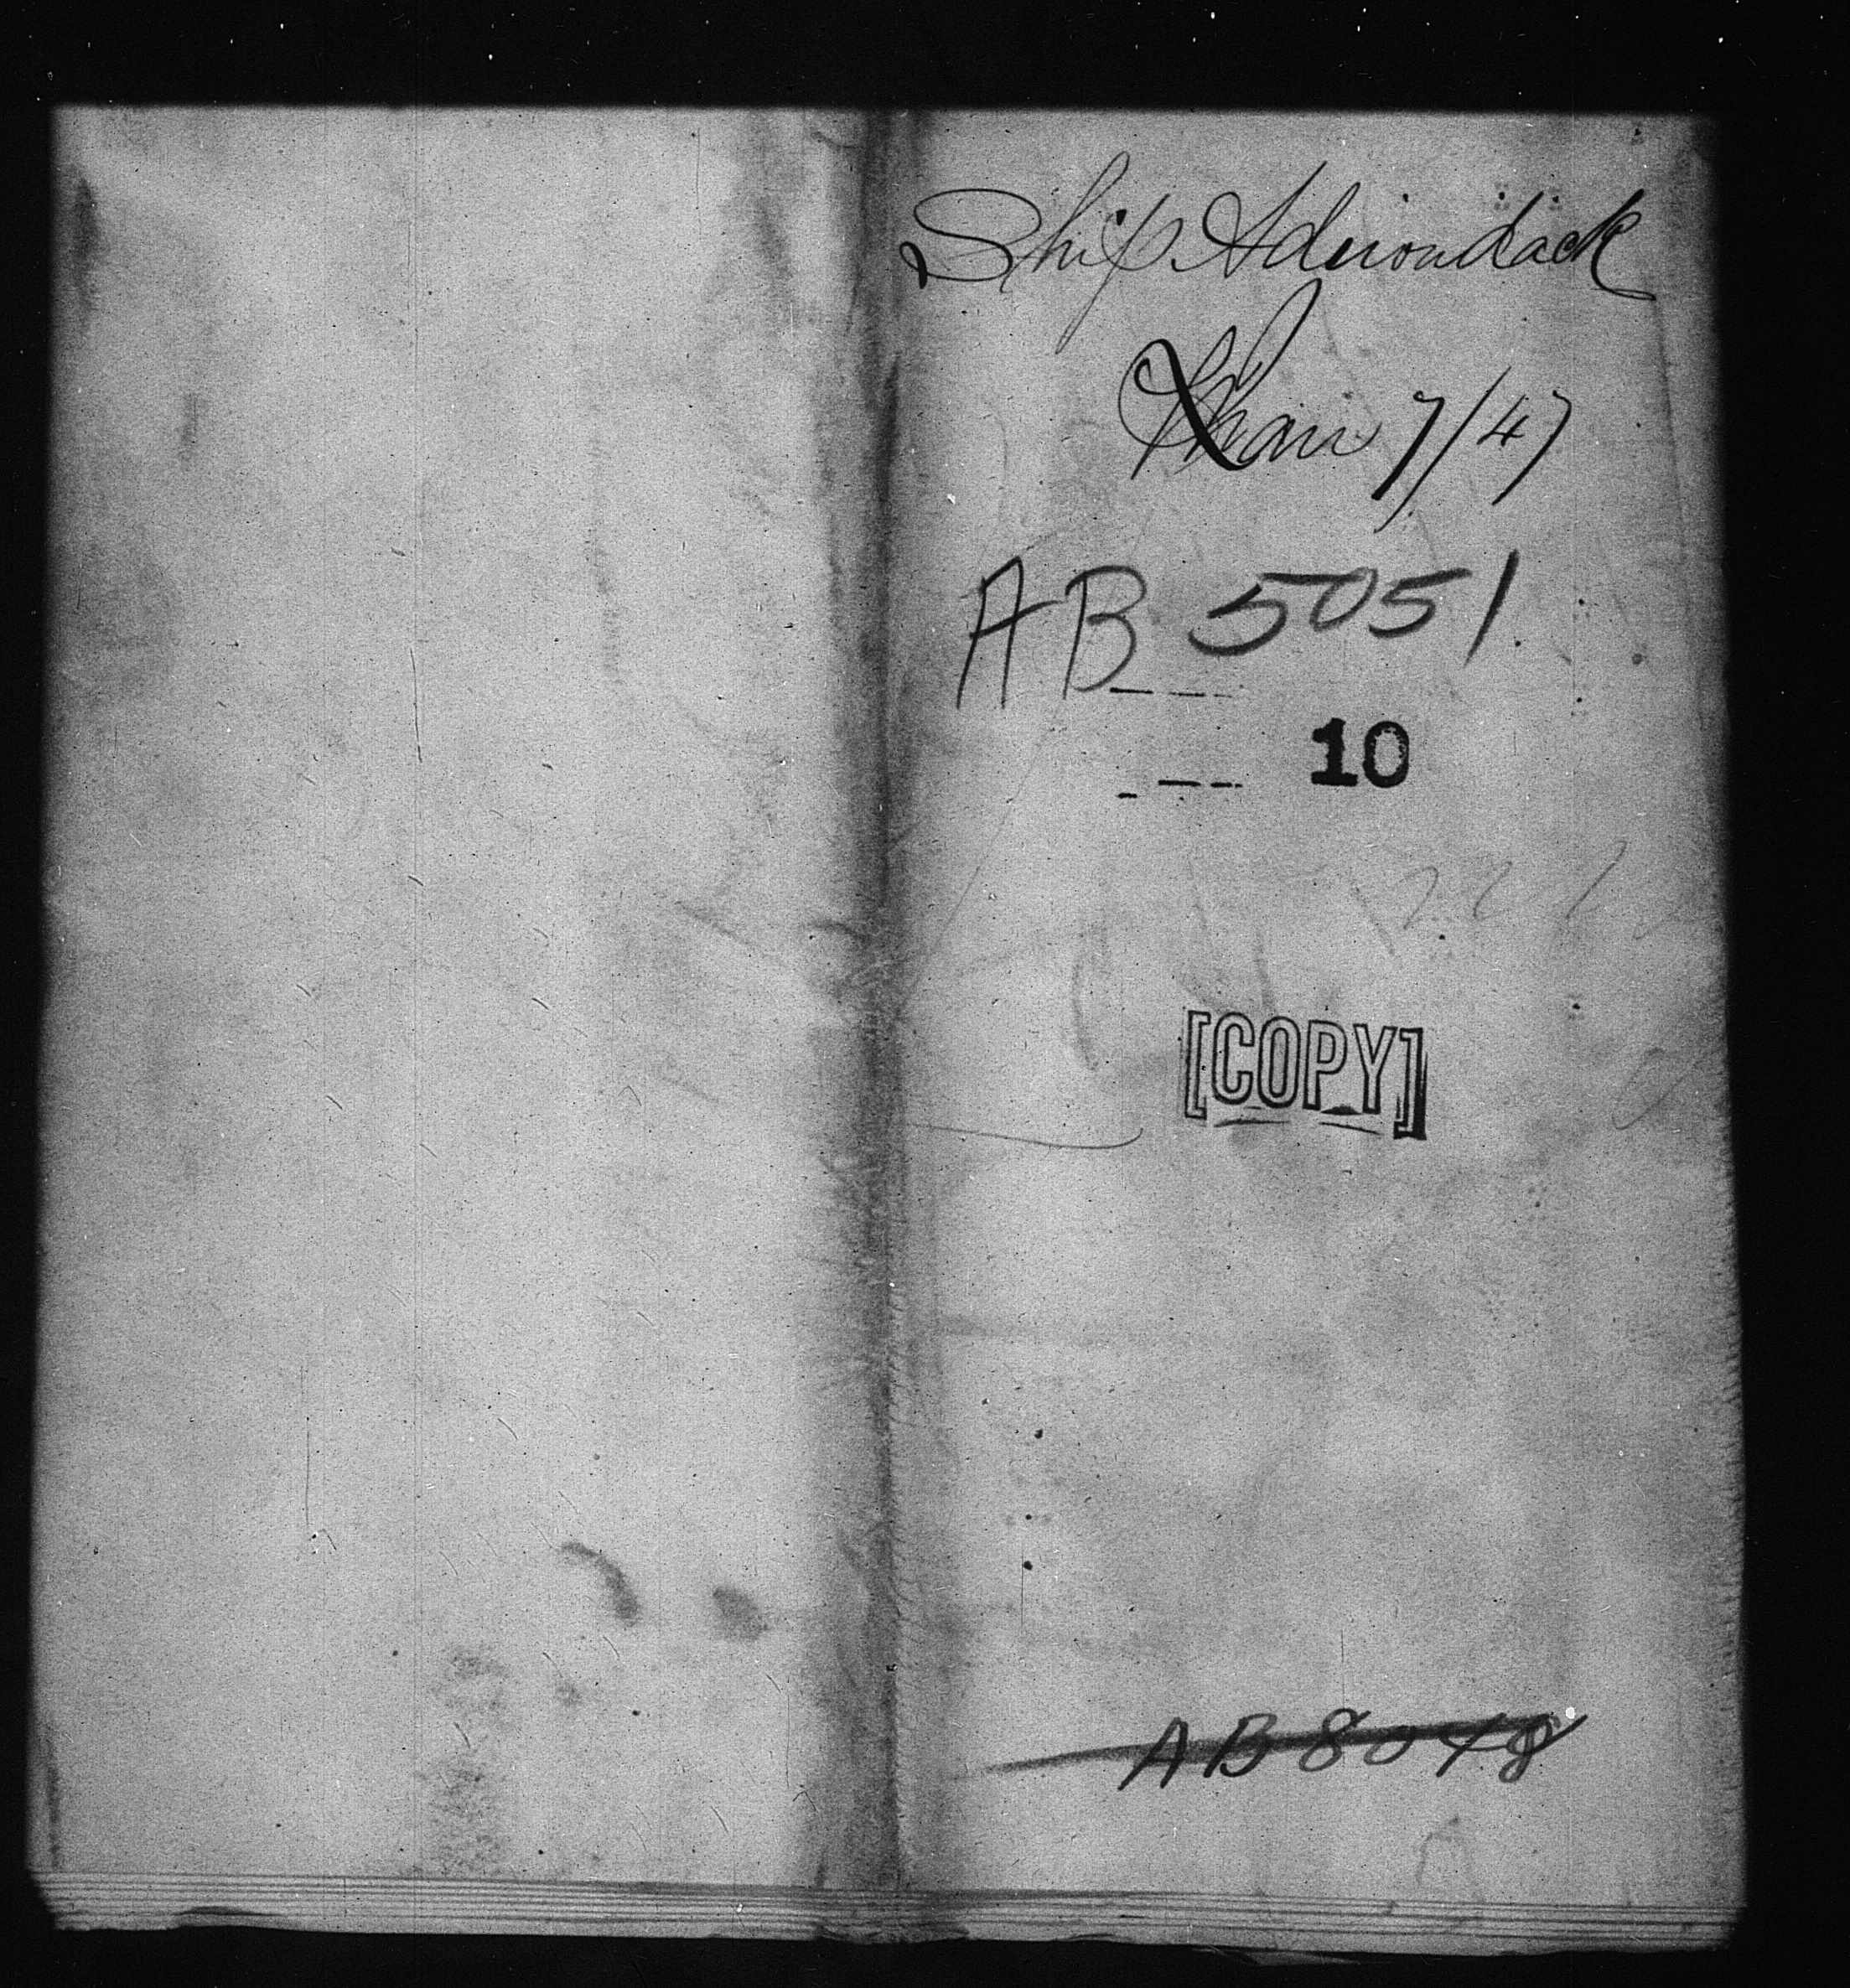 Ship Adirondack
7/47
AB 5051
10
[COPY]
AB 8048